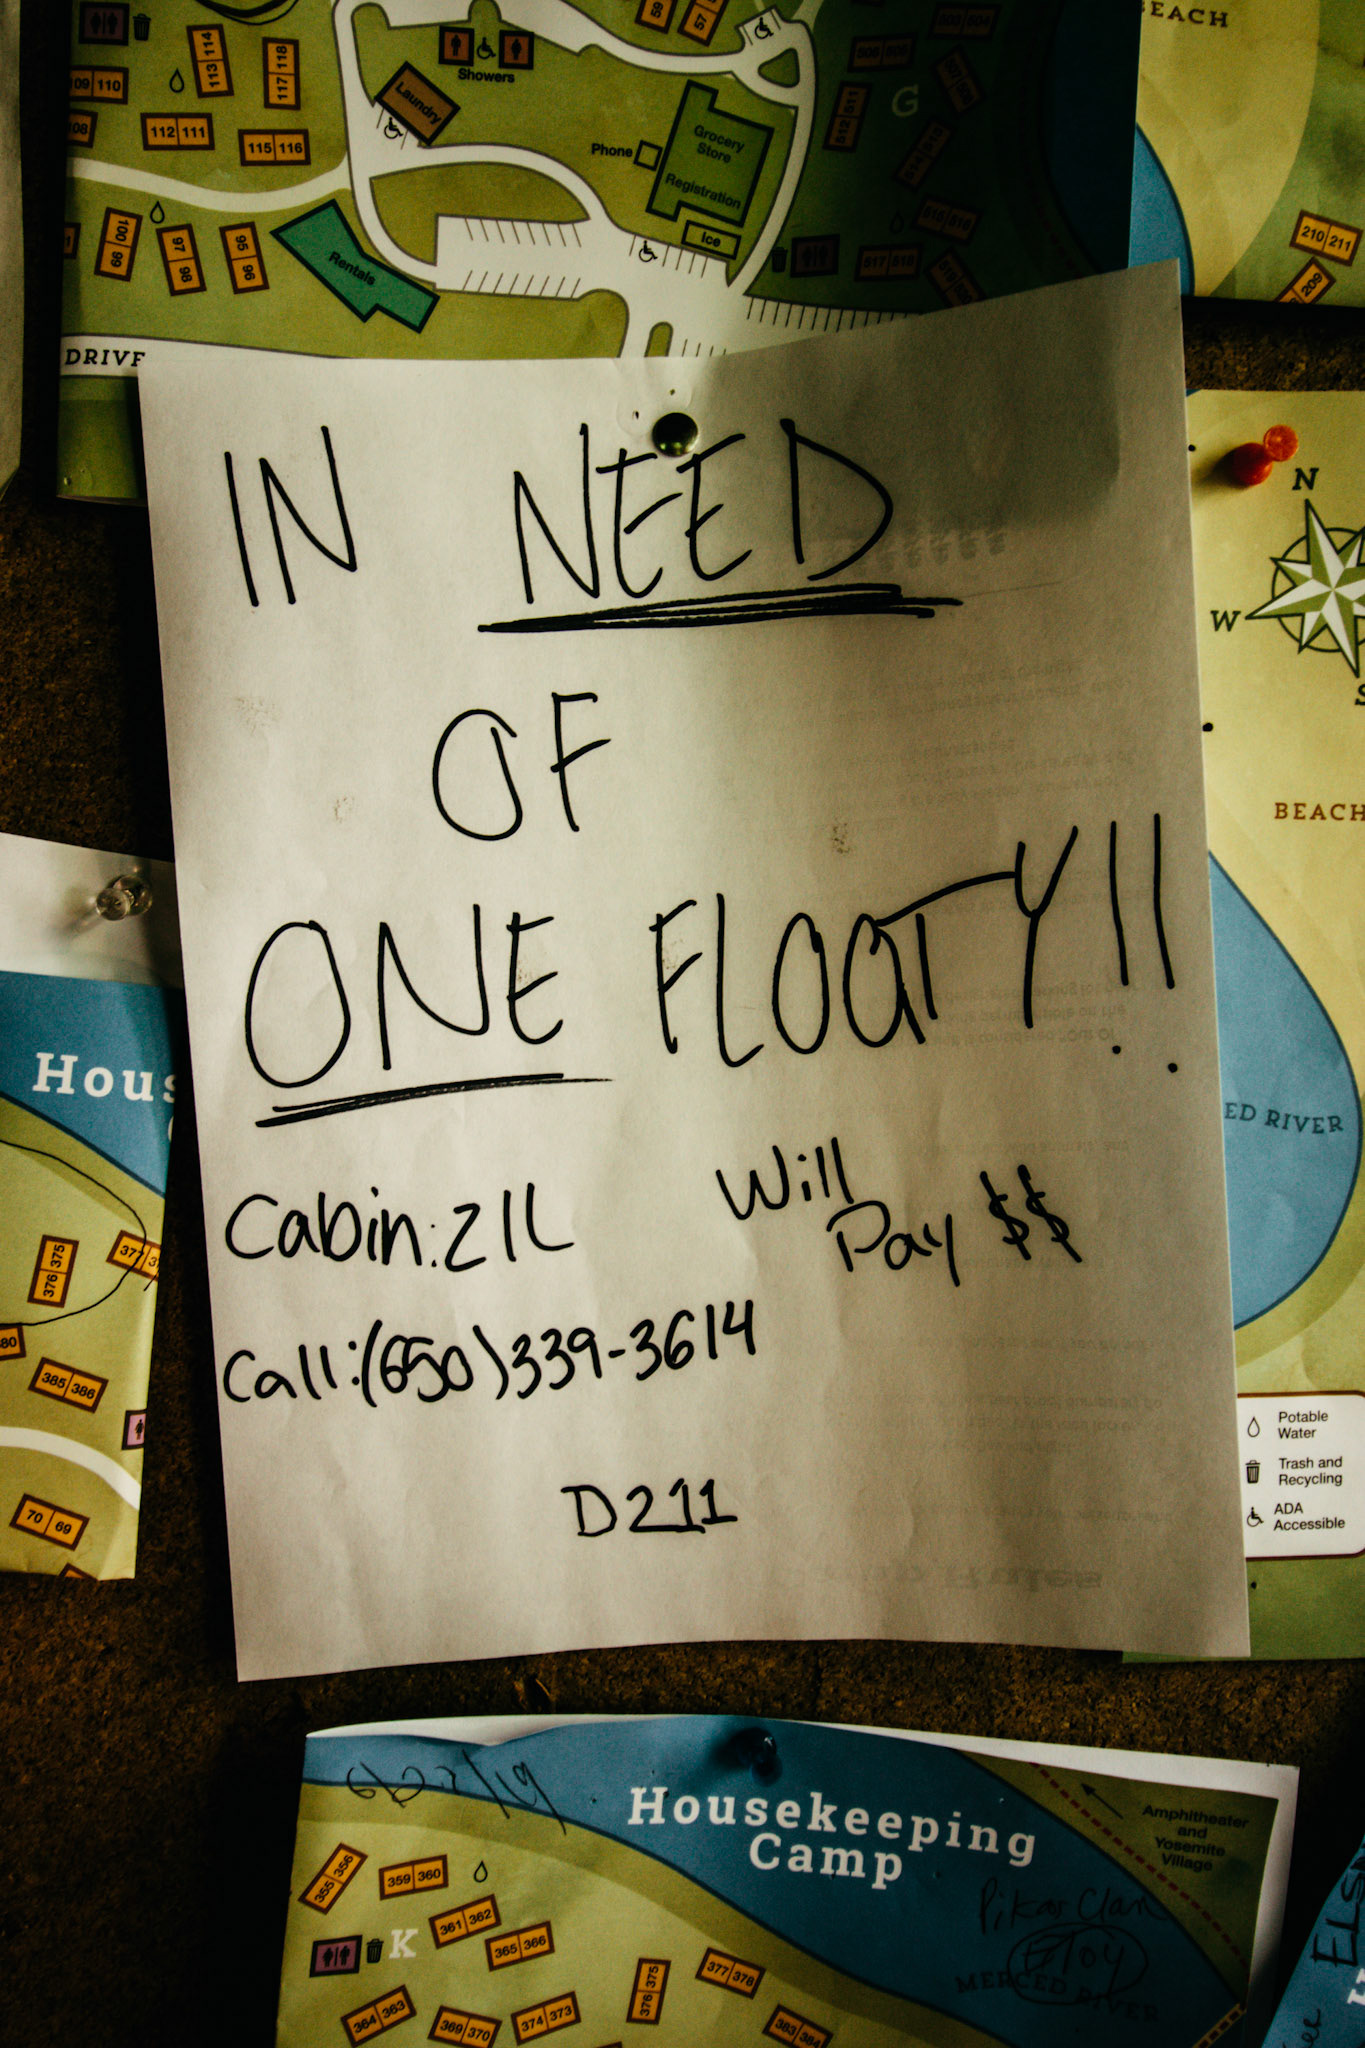 113 114
117 118
110
112 111
115 116
100 99
97 98
95 96
DRIVE
Showers
Laundry
Phone
Grocery
Store
Registration
Ice
Rentals
59
57
G
512 511
515 516
517 518
BEACH
210 211
209
IN NEED
OF
ONE FLOATY!!
Cabin: 211
Will
Pay $$
Call: (650) 339-3614
D211
N
W
S
BEACH
ED RIVER
Potable
Water
Trash and
Recycling
ADA
Accessible
Hous
376 375
377
80
385 386
70 69
Housekeeping
Camp
Amphitheater
and
Yosemite
Village
355 356
359 360
361 362
365 366
K
364 363
369 370
374 373
376 375
377 378
383 384
MERCED RIVER